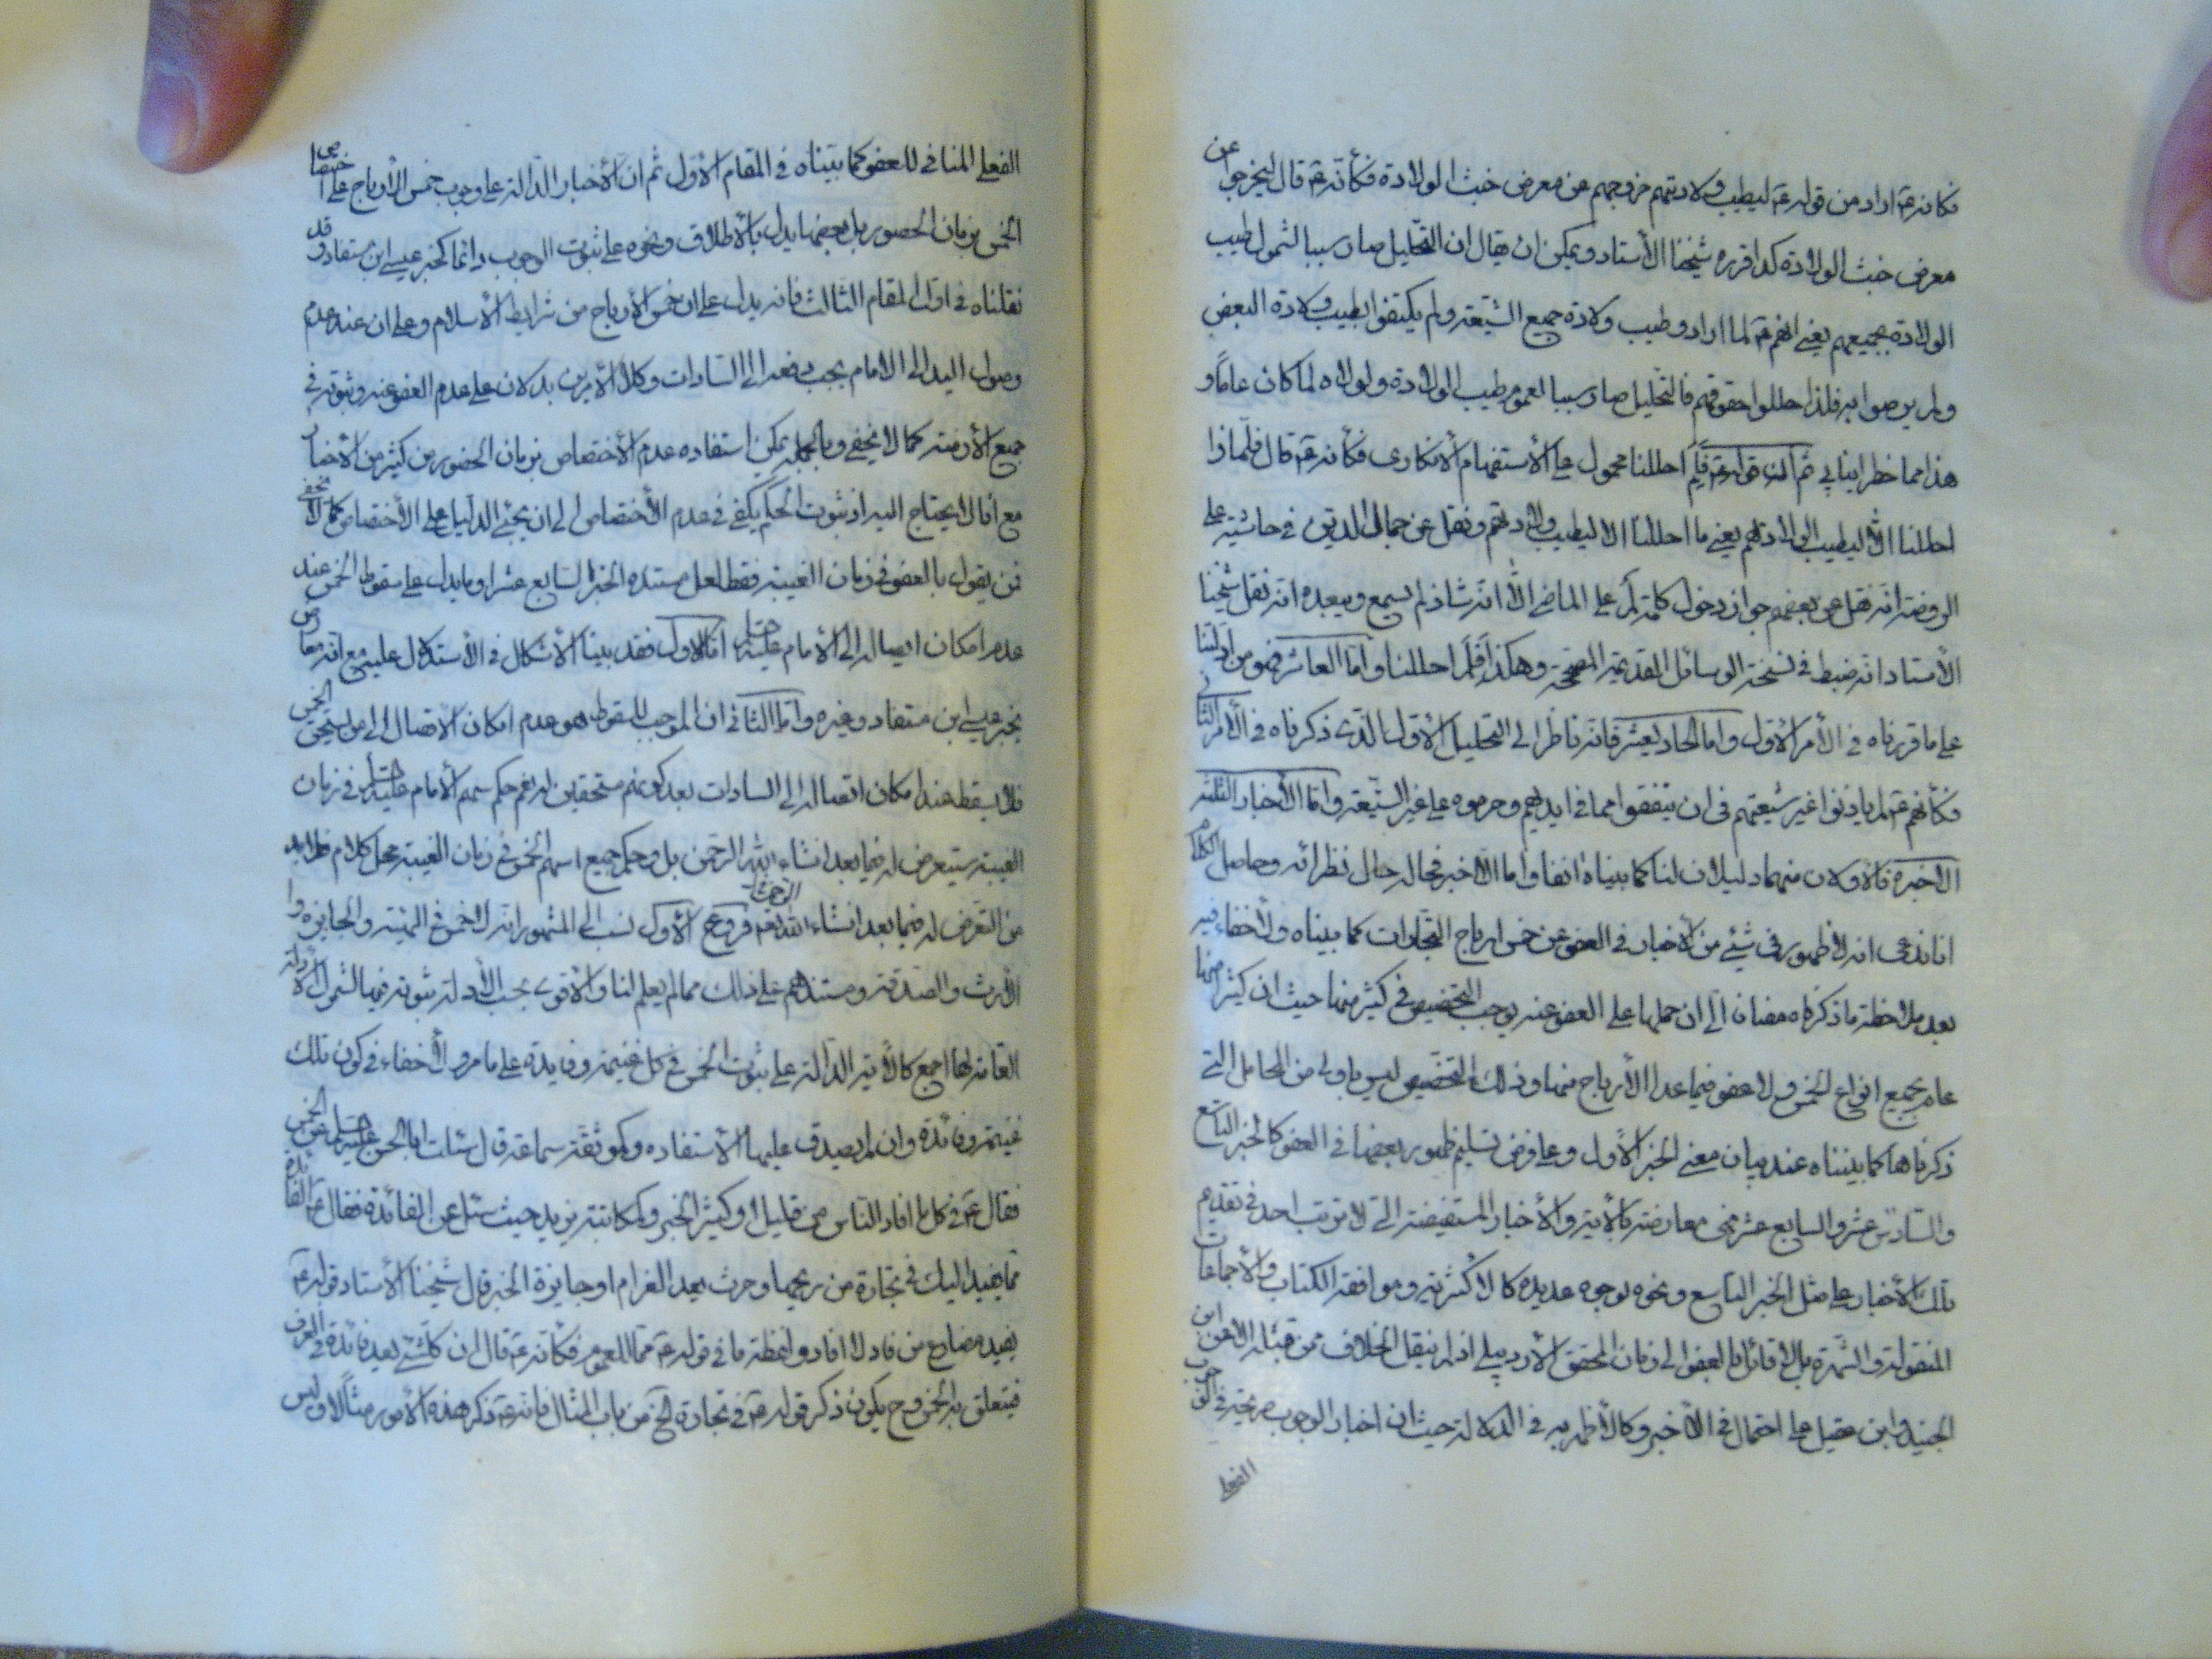 فكانه ع اراد من قوله ع ليطيب ولادتهم خروجهم عن معرض خبث الولادة فكأنه ع قال ليخرجوا عن
معرض خبث الولادة كذا قرره شيخنا الأستاد ويمكن ان يقال ان التحليل صار سببا لشمول طيب
الولادة بجميعهم يعني انهم ع لما ارادو طيب ولادة جميع الشيعة ولم يكتفوا بطيب ولادة البعض
ولم يرضوا به فلذا حللوا حقوقهم فالتحليل صار سببا لعموم طيب الولادة ولولاه لما كان عاما و
هذا مما خطر ببالي ثم ان قوله ع فلم احللنا محمول على الأستفهام الأنكاري فكأنه ع قال فلماذا
احللنا الا ليطيب الولادة لهم يعني ما احللنا الا ليطيب ولادتهم ونقل عن جمال الدين في حاشيته على
الروضة انه نقل عن بعضهم جواز دخول كلمة لم على الماضي الا انه شاذ لم يسمع ويبعده انه نقل شيخنا
الأستاد انه ضبط في نسخة الوسائل القديمة المصححة وهكذا فلم احللنا واما العاشر فهو من ادلتنا
على ما قررناه في الأمر الأول واما الحاديعشر فانه ناظر الى التحليل الأول الذي ذكرناه في الأمر الثاني
فكأنهم ع لم ياذنوا غير شيعتهم في ان ينفقوا مما في ايديهم وحرموه على غير الشيعة واما الأخبار الثلثة
الأخيرة فالأولان منهما دليلان لنا كما بيناه انفا واما الأخير فحاله حال نظرائه وحاصل الكلام
انا ندعى انه لا ظهور في شيئ من الأخبار في العفو عن خمس ارباح التجارات كما بيناه ولا خفاء فيه
بعد ملاحظة ما ذكرناه مضافا الى ان حملها على العفو عنه يوجب التخصيص في كثير منها حيث ان كثيرا منها
عام بجميع انواع الخمس ولا عفو فيما عدا الأرباح منها وذلك التخصيص ليس باولى من المحامل التي
ذكرناها كما بيناه عند بيان معنى الخبر الأول وعلى فرض تسليم ظهور بعضها في العفو كالخبر التاسع
والسادس عشر والسابع عشر فهي معارضة بالأية والأخبار المستفيضة التي لا يرتب احد في تقديم
تلك الأخبار على مثل الخبر التاسع ونحوه لوجوه عديدة كالاكثرية وموافقة الكتاب والأجماعات
المنقولة والشهرة بل لا قائل بالعفو الى زمان المحقق الأردبيلي اذ لم ينقل الخلاف ممن قبله الا عن ابن
الجنيد وابن عقيل على احتمال في الأخير وكالأظهرية في الدلالة حيث ان اخبار الوجوب صريحة في الوجوب
الفعلي
الفعلي المنافي للعفو كما بيناه في المقام الأول ثم ان الأخبار الدالة على وجوب خمس الأرباح على اختصاص
الخمس بزمان الحضور بل بعضها يدل بالأطلاق ونحوه على ثبوت الوجوب دائما كخبر عيسى ابن مستفاد وقد
نقلناه في اول المقام الثالث فانه يدل على ان خمس الأرباح من شرايط الأسلام وعلى ان عند عدم
وصول اليد الى الامام يجب دفعه الى السادات وكلا الأمرين يدلان على عدم العفو عنه وثبوته في
جميع الأزمنة كما لا يخفى وبالجملة يمكن استفاده عدم الأختصاص بزمان الحضور من كثير من الأخبار
مع انا لا نحتاج اليه اذ ثبوت الحكم يكفي في عدم الأختصاص الى ان يجئ الدليل على الأختصاص كما لا يخفى
فمن يقول بالعفو في زمان الغيبة فقط لعل مستنده الخبر السابع عشر او ما يدل على سقوط الخمس عند
عدم امكان ايصاله الى الأمام عليه السلام اما الأول فقد بينا الأشكال في الأستدلال عليه مع انه معارض
بخبر عيسى ابن مستفاد وغيره واما الثاني ان الموجب للسقوط هو عدم امكان الايصال الى من يستحق الخمس
فلا يسقط عند امكان ايصاله الى السادات بعد كونهم مستحقين له نعم حكم سهم الأمام عليه السلام في زمان
الغيبة ستعرض له فيما بعد انشاء الله الرحمن بل وحكم جميع اسهم الخمس في زمان الغيبة محل كلام فلا بد
من التعرض له فيما بعد انشاء الله تعالى الرحمن فروع الأول نسب الى المشهور انه لا خمس في الهبة والجايزة وا
لأرث والصدقة ومستندهم على ذلك مما لم يعلم لنا والأقوى بحسب الأدلة ثبوته فيها لشمول الأدلة
العامة لها اجمع كالأية الدالة على ثبوت الخمس في كل غنيمة وفايدة على ما مر ولا خفاء في كون تلك
غنيمة وفائدة وان لم يصدق عليها الأستفاده وكموثقة سماعة قال سئلت ابا الحسن عليه السلام عن الخمس
فقال ع في كل ما افاد الناس من قليل او كثير الخبر وكمكاتبة يزيد حيث سئل عن الفائدة فقال ع الفائدة
مما يفيد اليك في تجارة من ربحها وحرث بعد الغرام او جايزة الخبر قال شيخنا الأستاد قوله ع
يفيد مضارع من فاد لا افاد ولفظة ما في قوله ع مما للعموم فكأنه ع قال ان كل شئ يعد فائدة في العرف
فيتعلق به الخمس وح يكون ذكر قوله ع في تجارة الخ من باب المثال فانه ع ذكر هذه الأمور مثالا وليس